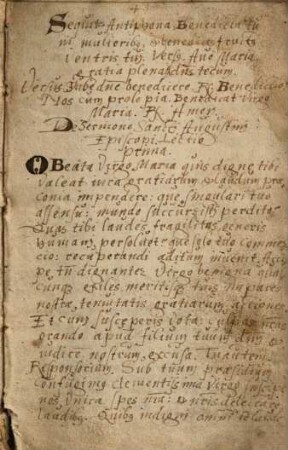 Sequit Antiphona Benedicta tu
in mulieribg, et benedictg fructg
Ventris tui. Versg. Ave Maria
gratia plena dns tecum.
Versus. Iube dne benedicere. R. Benedictio.
Nos cum prole pia. Benedicat Virgo
Maria. R. Amen.
De Sermone Sancti Augustini
Episcopi. Lectio
Prima.
O Beata Virgo Maria quis digne tibi
valeat iura gratiarum ac laudum præ-
conia impendere: que singulari tuo
assensu: mundo succurristi perdito.
Quas tibi laudes fragilitas generis
humani persoluet: que solo tuo commer-
cio: recuperandi aditum invenit. Acci-
pe itaque dignanter Virgo benigna quas
cunqs exiles, meritisqs tuis impares
nostre tenuitatis gratiarum actiones.
Et cum susceperis vota: culpas nras
orando apud filium tuum dnm et
iudice nostrum excusa. Tu autem.
Responsorium. Sub tuum præsidium
confugimg clementissima Virgo
nos. Unica spes nra:
laudibg. Quibg